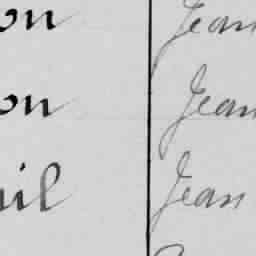 on Jean
on Jean
il Jean